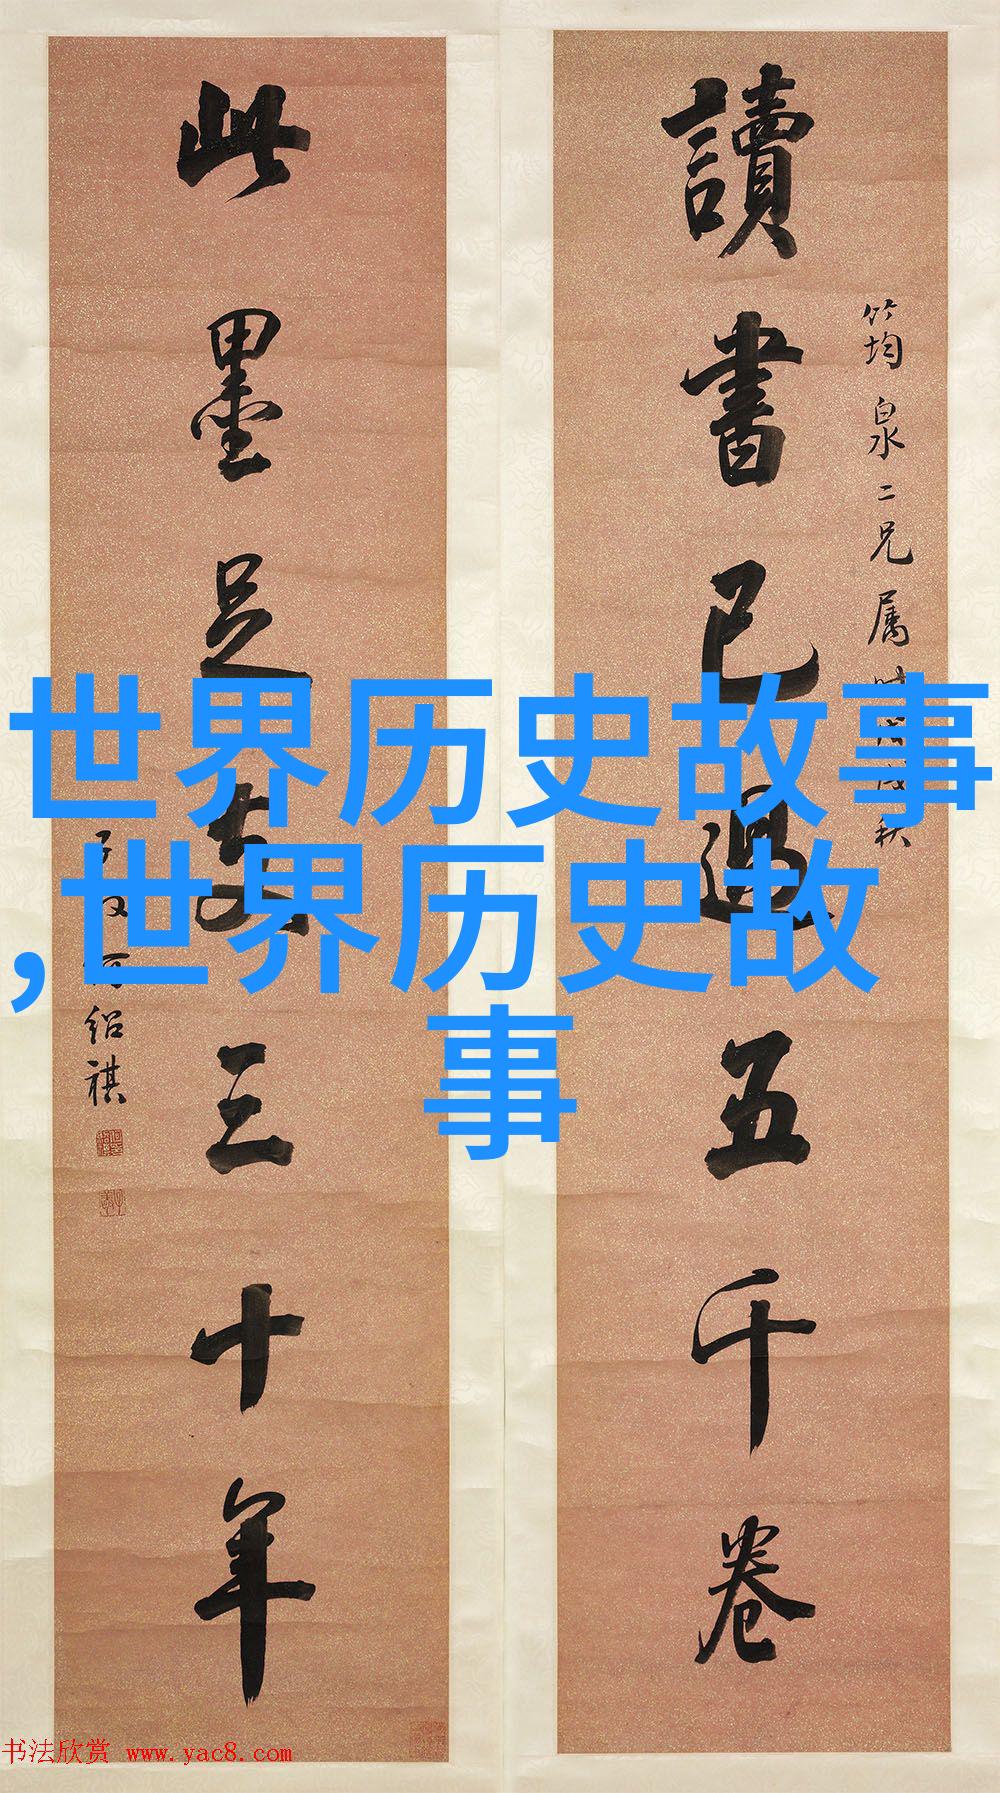 讀書已過五千卷
筠泉二兄属
秋
此墨足支三十年
子
何紹祺
世界历史故事
,世界历史故
事
书法欣赏 www.yac8.com